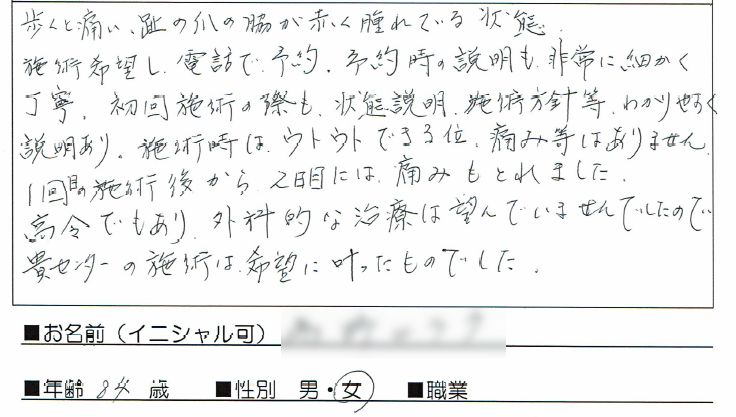 歩くと痛い、趾の爪の脇が赤く腫れている状態。
施術希望し、電話で予約、予約時の説明も非常に細かく
丁寧。初回施術の際も、状態説明、施術方針等、わかりやすく
説明あり。施術時は、ウトウトできる位、痛み等はありません。
1回目の施術後から、2日目には、痛みもとれました。
高令でもあり、外科的な治療は望んでいませんでしたので
貴センターの施術は、希望に叶ったものでした。
■お名前（イニシャル可）
■年齢 歳 ■性別 男・女 ■職業